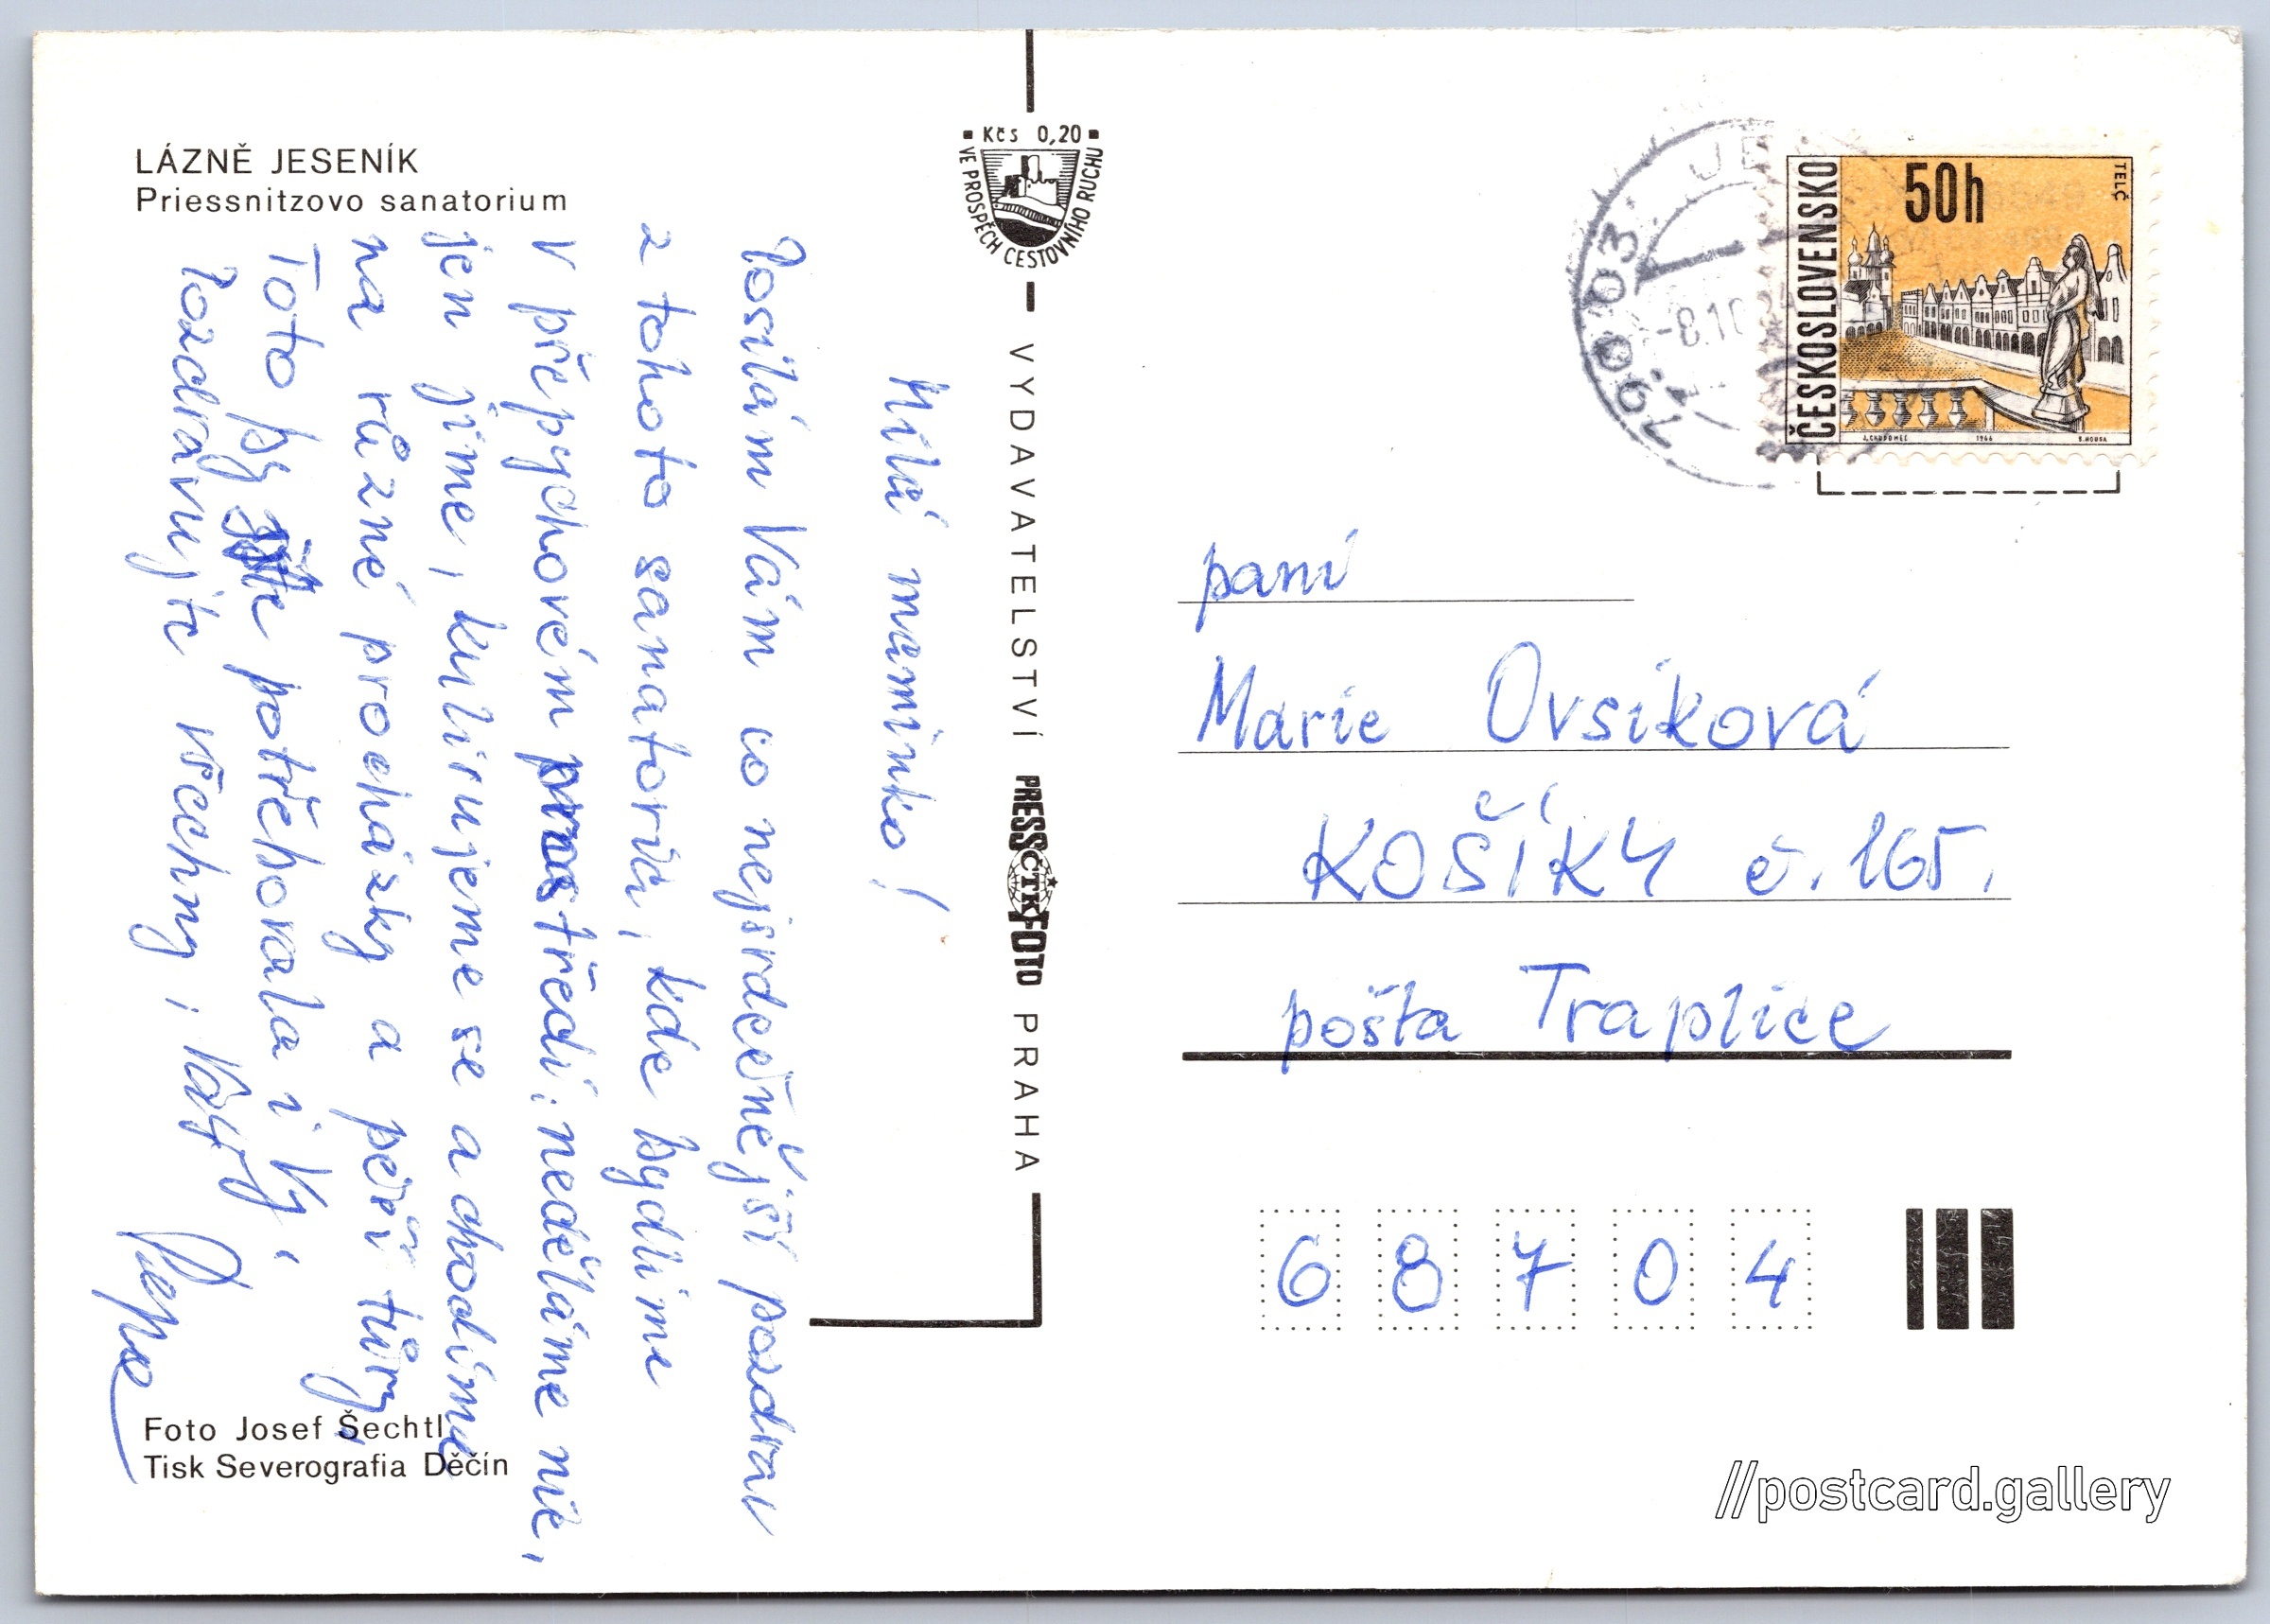 LÁZNĚ JESENÍK
Priessnitzovo sanatorium
Milá maminko!
Posílám Vám co nejsrdečnější pozdrav
z tohoto sanatoria, kde bydlíme
v přepychovém prostředí: neděláme nic,
jen jíme, kulirujeme se a chodíme
na různé procházky a pěší túry.
Toto by potřebovala i Vy,
Pozdravujte všechny, Váš
Pepa
Foto Josef Šechtl
Tisk Severografia Děčín
Kčs 0,20
VE PROSPĚCH CESTOVNÍHO RUCHU
VYDAVATELSTVÍ PRESSFOTO PRAHA
ČTK
790 03
-8.10
ČESKOSLOVENSKO
50h
TELČ
J.CHUDOMEL 1966 B.HOUSA
paní
Marie Ovsíková
KOŠÍKY č. 165.
pošta Traplice
68704
//postcard.gallery